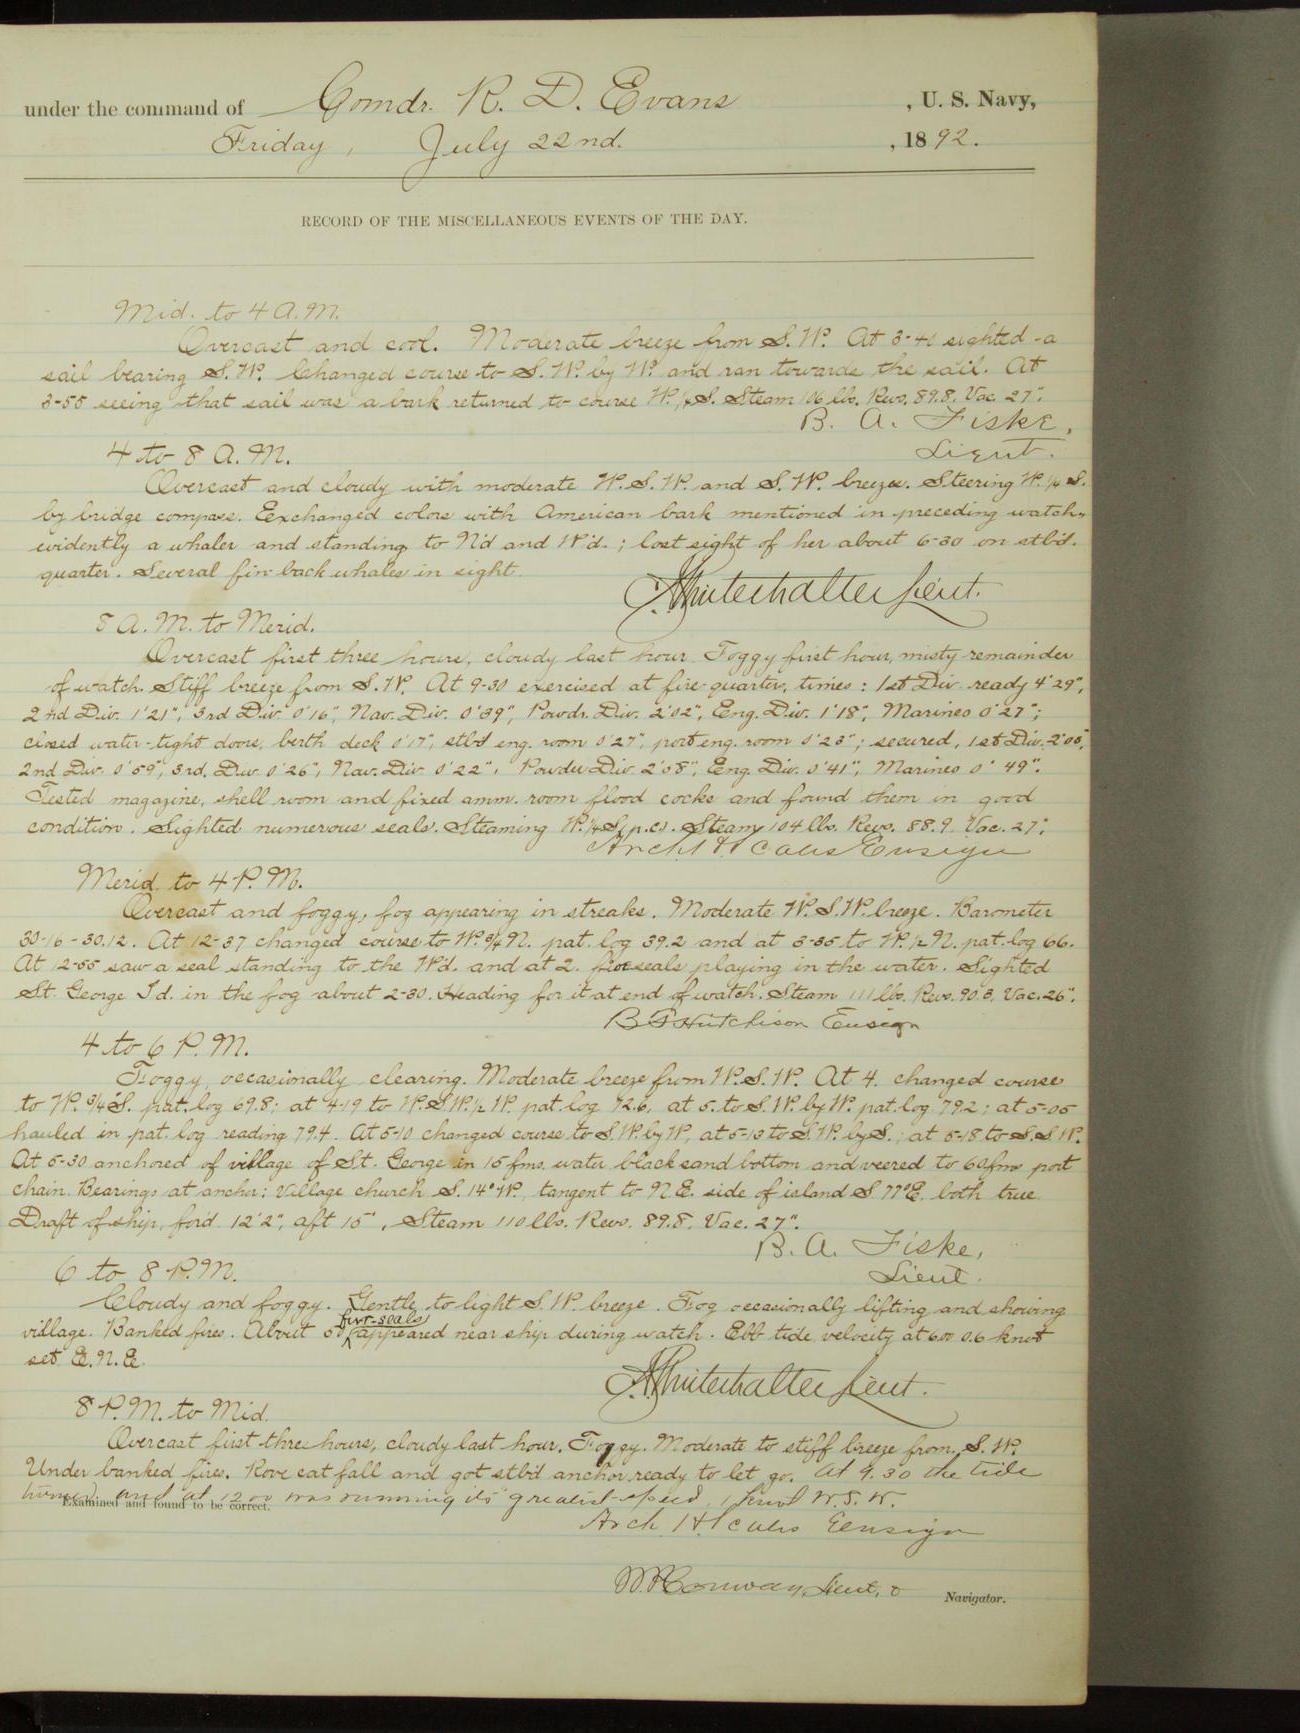 under the command of Comdr. R. D. Evans , U. S. Navy,
Friday, July 22nd. , 1892.
RECORD OF THE MISCELLANEOUS EVENTS OF THE DAY.
Mid. to 4 A.M.
Overcast and cool. Moderate breeze from S.W. At 3-40 sighted a
sail bearing S.W. Changed course to S.W. by W. and ran towards the sail. At
3-55 seeing that sail was a bark returned to course W. 1/4 S. Steam 106 lbs. Revs. 89.8. Vac. 27".
B. A. Fiske,
Lieut.
4 to 8 A.M.
Overcast and cloudy with moderate W.S.W. and S.W. breezes. Steering W. 1/4 S.
by bridge compass. Exchanged colors with American bark mentioned in preceding watch,
evidently a whaler and standing to N'd and W'd.; lost sight of her about 6-30 on stb'd.
quarter. Several fin-back whales in sight.
Winterhalter Lieut.
8 A.M. to Merid.
Overcast first three hours, cloudy last hour. Foggy first hour, misty remainder
of watch. Stiff breeze from S.W. At 9-30 exercised at fire quarters, times: 1st Div. ready 4'29",
2nd Div. 1'21", 3rd Div. 0'16", Nav. Div. 0'39", Powdr. Div. 2'02", Eng. Div. 1'18", Marines 0'27";
closed water-tight doors, berth deck 0'17", stb'd eng. room 0'27", port eng. room 0'23"; secured, 1st Div. 2'05",
2nd Div. 0'59", 3rd. Div. 0'26", Nav. Div. 0'22", Powder Div. 2'08", Eng. Div. 0'41", Marines 0'49".
Tested magazine, shell room and fixed amm. room flood cocks and found them in good
condition. Sighted numerous seals. Steaming W. 1/4 S. (p.c.). Steam 104 lbs. Revs. 88.9. Vac. 27".
Arch. H. Scales Ensign
Merid. to 4 P.M.
Overcast and foggy, fog appearing in streaks. Moderate W.S.W. breeze. Barometer
30-16 - 30.12. At 12-37 changed course to W. 3/4 N. pat. log 39.2 and at 3-35 to W. 1/2 N. pat. log 66.
At 12-55 saw a seal standing to the W'd. and at 2. five seals playing in the water. Sighted
St. George Id. in the fog about 2-30. Heading for it at end of watch. Steam 111 lbs. Revs. 90.3, Vac. 26".
B F Hutchison Ensign
4 to 6 P.M.
Foggy, occasionally clearing. Moderate breeze from W.S.W. At 4. changed course
to W. 3/4 S. pat. log 69.8; at 4-19 to W.S.W. 1/2 W. pat. log 72.6, at 5. to S.W. by W. pat. log 79.2; at 5-05
hauled in pat. log reading 79.4. At 5-10 changed course to S.W. by W, at 5-13 to S.W. by S.; at 5-18 to S.S.W.
At 5-30 anchored of village of St. George in 15 fms. water black sand bottom and veered to 60 fms port
chain. Bearings at anchor: Village church S. 14° W. tangent to N.E. side of island S 77° E. both true.
Draft of ship, for'd 12'2", aft 15', Steam 110 lbs. Revs. 89.8. Vac. 27".
B. A. Fiske,
Lieut.
6 to 8 P.M.
Cloudy and foggy. Gentle to light S.W. breeze. Fog occasionally lifting and showing
fur-seals
village. Banked fires. About 50 appeared near ship during watch. Ebb tide velocity at 6.00 0.6 knot
set E.N.E.
Winterhalter Lieut.
8 P.M. to Mid.
Overcast first three hours, cloudy last hour. Foggy. Moderate to stiff breeze from S.W.
Under banked fires. Rove cat fall and got stb'd anchor ready to let go. At 9.30 the tide
turned and at 12.00 was running its greatest speed, 1 knot W.S.W.
Examined and found to be correct.
Arch. H. Scales Ensign
W P Conway, Lieut,
Navigator.